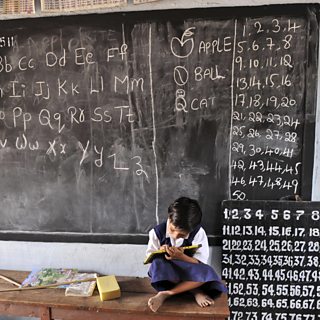 Bb Cc Dd Ee Ff
Ii Jj Kk Ll Mm
Pp Qq Rr Ss Tt
Ww Xx Yy Zz
APPLE
BALL
CAT
1, 2, 3, 4
5, 6, 7, 8
9, 10, 11, 12
13, 14, 15, 16
17, 18, 19, 20
21, 22, 23, 24
25, 26, 27, 28
42, 43, 44, 45
46, 47, 48, 49
50
1 2 3 4 5 6 7 8
11 12 13 14 15 16 17 18
21 22 23 24 25 26 27 28
31 32 33 34 35 36 37 38
41 42 43 44 45 46 47 48
51 52 53 54 55 56 57 58
61 62 63 64 65 66 67 68
71 72 73 74 75 76 77